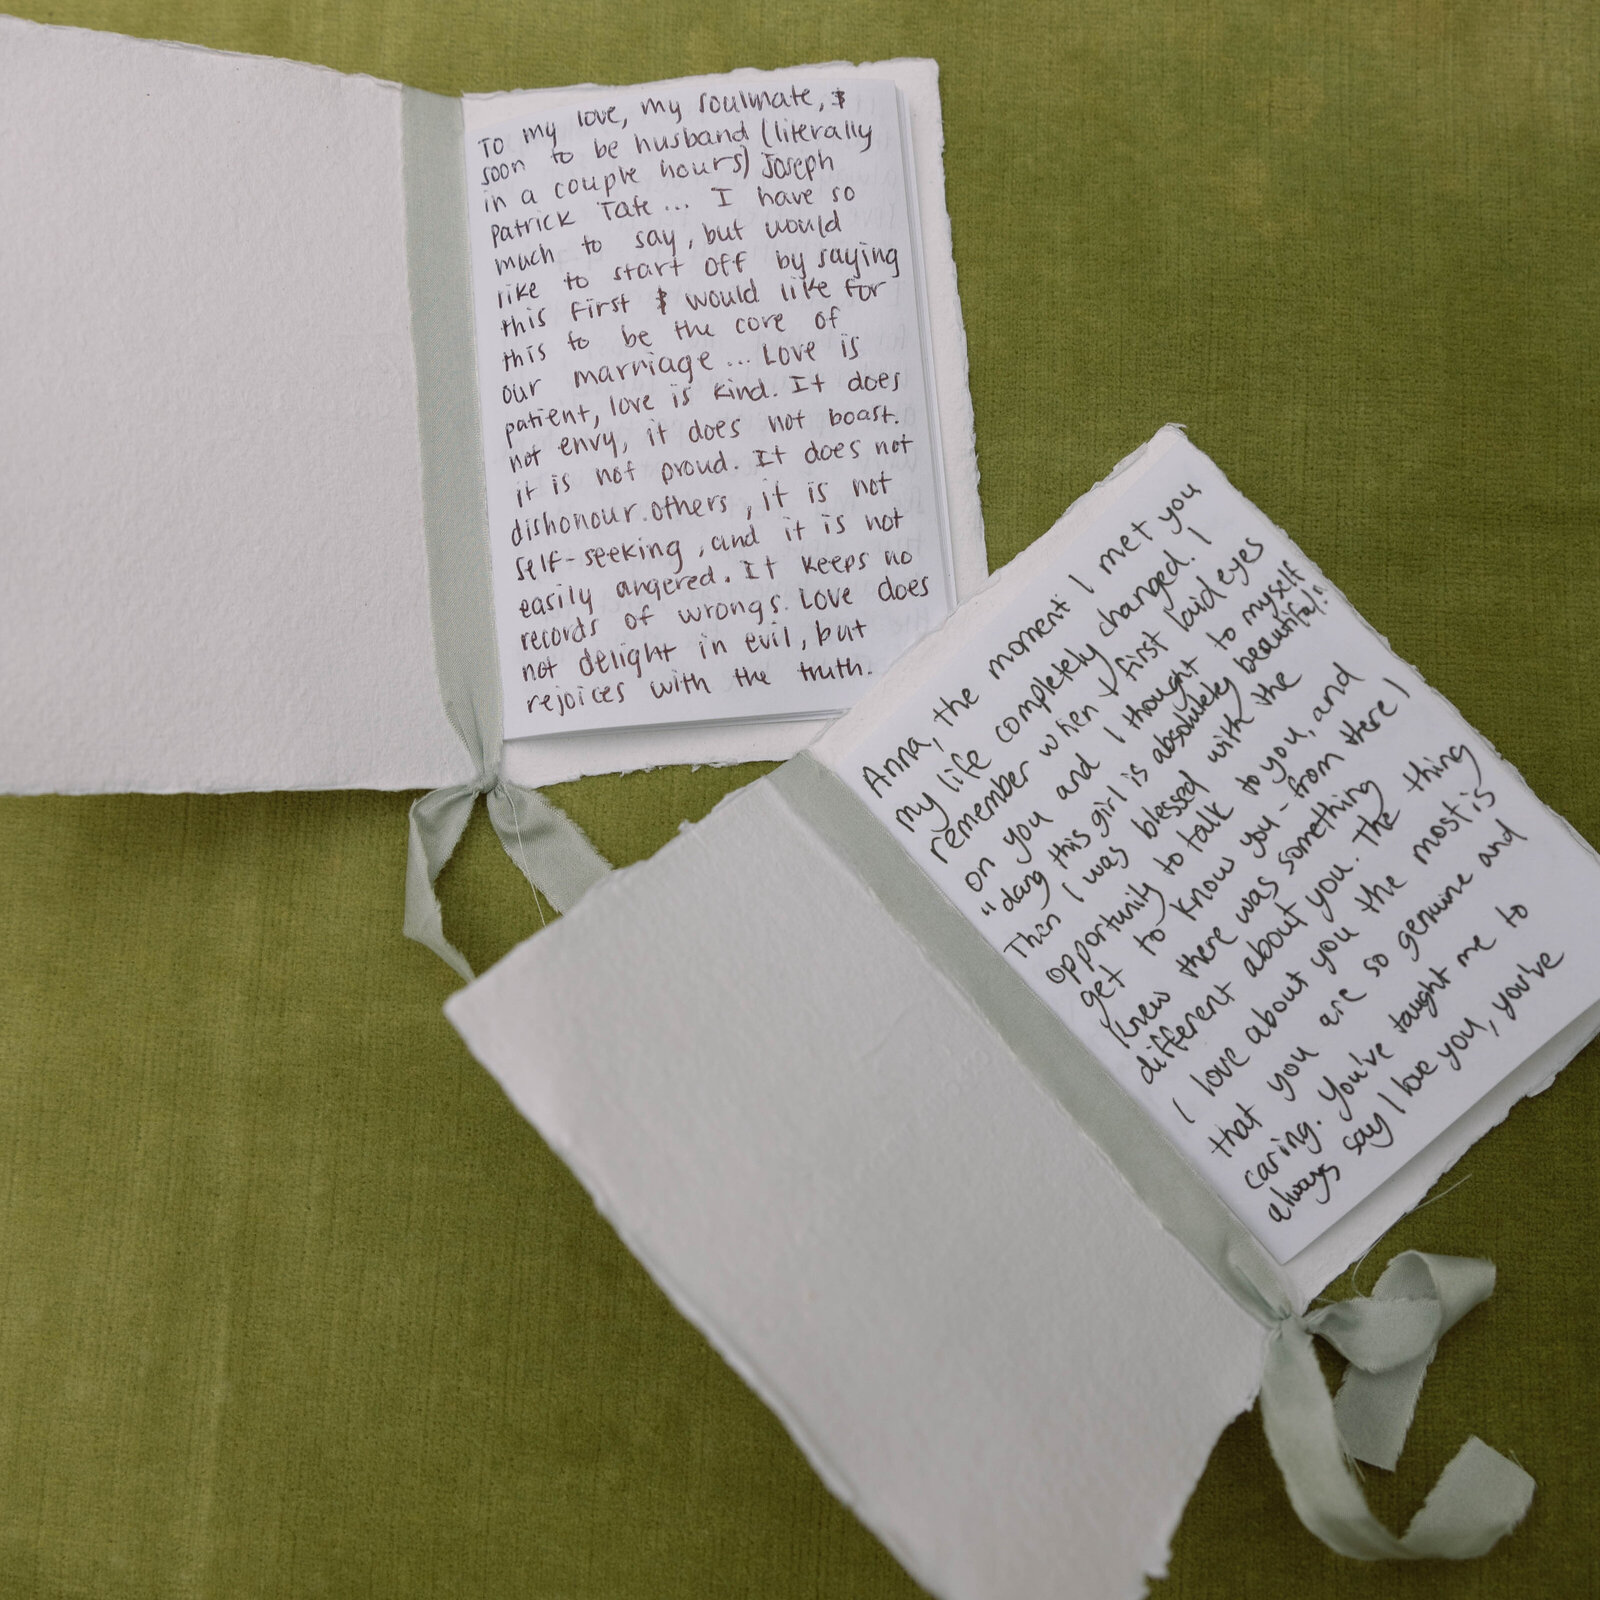 To my love, my soulmate, &
soon to be husband (literally
in a couple hours) Joseph
Patrick Tate... I have so
much to say, but would
like to start off by saying
this first & would like for
this to be the core of
our marriage... Love is
patient, love is kind. It does
not envy, it does not boast.
it is not proud. It does not
dishonour.others, it is not
self-seeking, and it is not
easily angered. It keeps no
records of wrongs. Love does
not delight in evil, but
rejoices with the truth.
Anna, the moment I met you
my life completely changed. I
remember when I first laid eyes
on you and I thought to myself
"dang this girl is absolutely beautiful."
Then I was blessed with the
opportunity to talk to you, and
get to know you - from there I
knew there was something
different about you. The thing
I love about you the most is
that you are so genuine and
caring. You've taught me to
always say I love you, you've